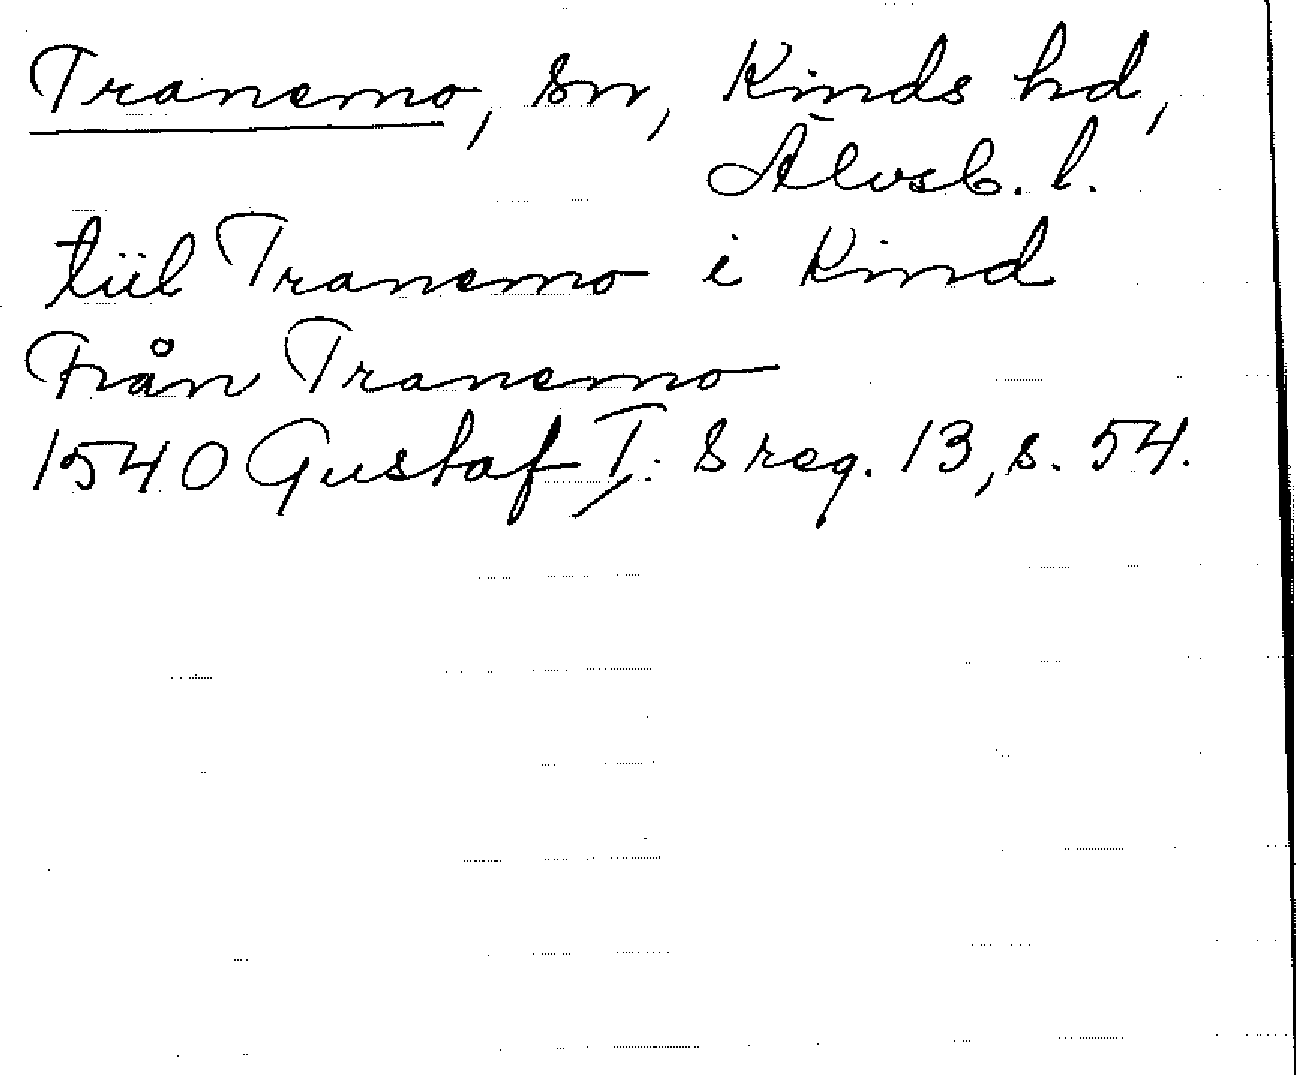 Tranemo, sn, Kinds hd,
Älvsb. l.
tiil Tranemo i Kind
Från Tranemo
1540 Gustaf I:s reg. 13, s. 54.